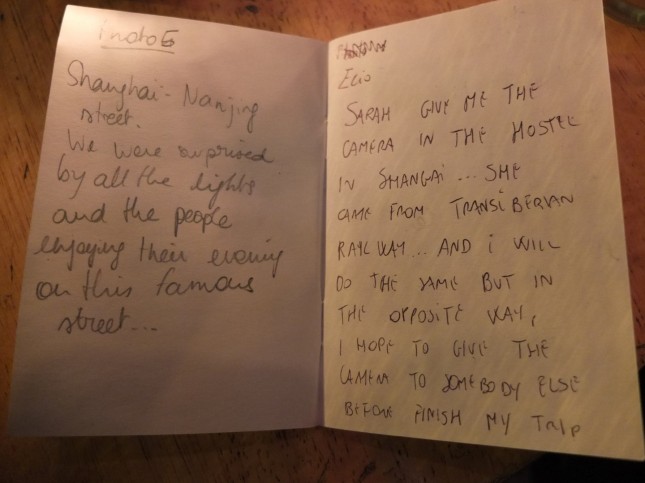 Shanghai - Nanjing
street.
We were surprised
by all the lights
and the people
enjoying their evening
on this famous
street...
Elio
SARAH GIVE ME THE
CAMERA IN THE HOSTEL
IN SHANGAI ... SHE
CAME FROM TRANSIBERIAN
RAYLWAY... AND i WILL
DO THE SAME BUT IN
THE OPPOSITE WAY,
I HOPE TO GIVE THE
CAMERA TO SOMEBODY ELSE
BEFORE FINISH MY TRIP